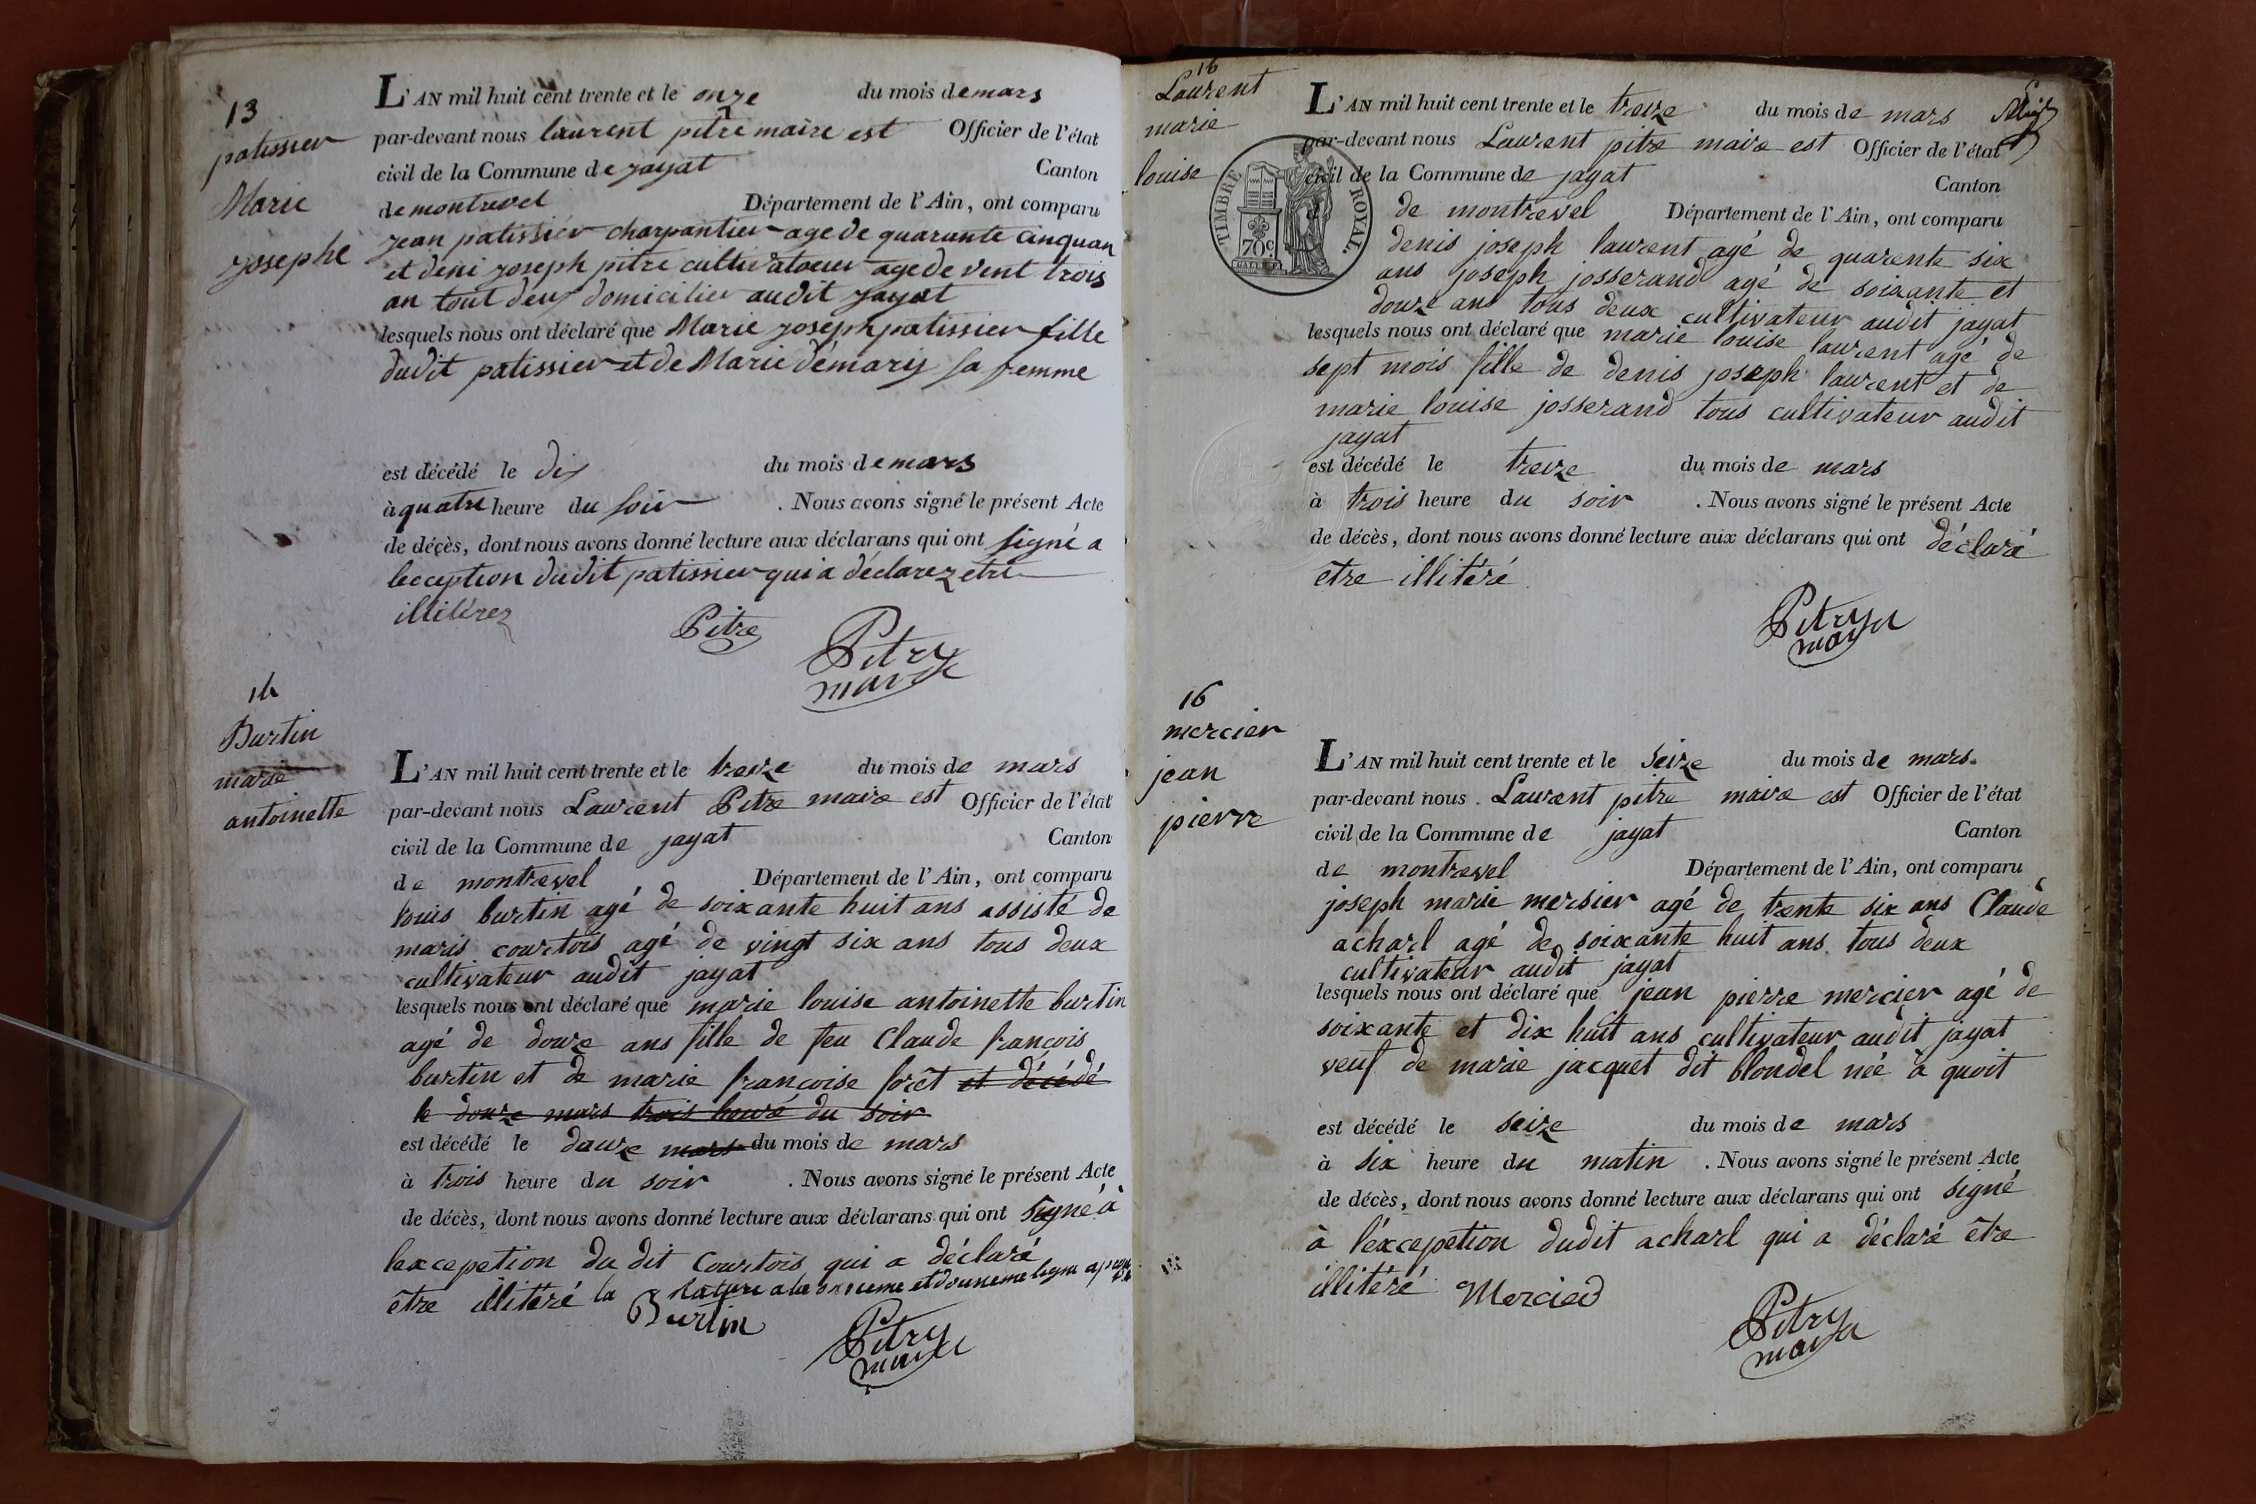 13
patissier
Marie
josephe
L'AN mil huit cent trente et le onze du mois de mars
par-devant nous laurent pitre maire est Officier de l'état
civil de la Commune de jayat Canton
de montrevel Département de l'Ain, ont comparu
jean patissier charpantier age de quarante cinquan
et deni joseph pitre cultivatoeur age de vent trois
an tout deux domicilier audit jayat
lesquels nous ont déclaré que Marie joseph patissier fille
dudit patissier et de Marie démary sa femme
est décédé le dix du mois de mars
à quatre heure du soir . Nous avons signé le présent Acte
de décès, dont nous avons donné lecture aux déclarans qui ont signé a
lecception dudit patissier qui a déclarez etre
illitérez
Pitre
Pitre
maire
14
Burtin
marie
antoinette
L'AN mil huit cent trente et le treize du mois de mars
par-devant nous Laurent Pitre maire est Officier de l'état
civil de la Commune de jayat Canton
de montrevel Département de l'Ain, ont comparu
louis burtin agé de soixante huit ans assisté de
maris courtois agé de vingt six ans tous deux
cultivateur audit jayat
lesquels nous ont déclaré que marie louise antoinette burtin
agé de douze ans fille de feu Claude françois
burtin et de marie françoise forêt et décédé
le douze mars trois heure du soir
est décédé le douze mars du mois de mars
à trois heure du soir . Nous avons signé le présent Acte
de décès, dont nous avons donné lecture aux déclarans qui ont signé à
lexcepetion du dit Courtois qui a déclaré
être illitéré la rature a la onzieme et douzieme ligne
Burtin
Pitre
maire
16
Laurent
marie
louise
TIMBRE ROYAL
70c.
L'AN mil huit cent trente et le treize du mois de mars
par-devant nous Laurent pitre maire est Officier de l'état
civil de la Commune de jayat Canton
de montrevel Département de l'Ain, ont comparu
denis joseph laurent agé de quarente six
ans joseph josserand agé de soixante et
douze ans tous deux cultivateur audit jayat
lesquels nous ont déclaré que marie louise laurent agé de
sept mois fille de denis joseph laurent et de
marie louise josserand tous cultivateur audit
jayat
est décédé le treize du mois de mars
à trois heure du soir . Nous avons signé le présent Acte
de décès, dont nous avons donné lecture aux déclarans qui ont déclaré
être illitéré
Pitre
maire
16
mercier
jean
pierre
L'AN mil huit cent trente et le seize du mois de mars
par-devant nous Laurent pitre maire est Officier de l'état
civil de la Commune de jayat Canton
de montrevel Département de l'Ain, ont comparu
joseph marie mersier agé de trente six ans Claude
acharl agé de soixante huit ans tous deux
cultivateur audit jayat
lesquels nous ont déclaré que jean pierre mercier agé de
soixante et dix huit ans cultivateur audit jayat
veuf de marie jacquet dit blondel néé à quoit
est décédé le seize du mois de mars
à six heure du matin . Nous avons signé le présent Acte
de décès, dont nous avons donné lecture aux déclarans qui ont signé
à l'éxcepetion dudit acharl qui a déclaré être
illitéré
Mercied
Pitre
maire